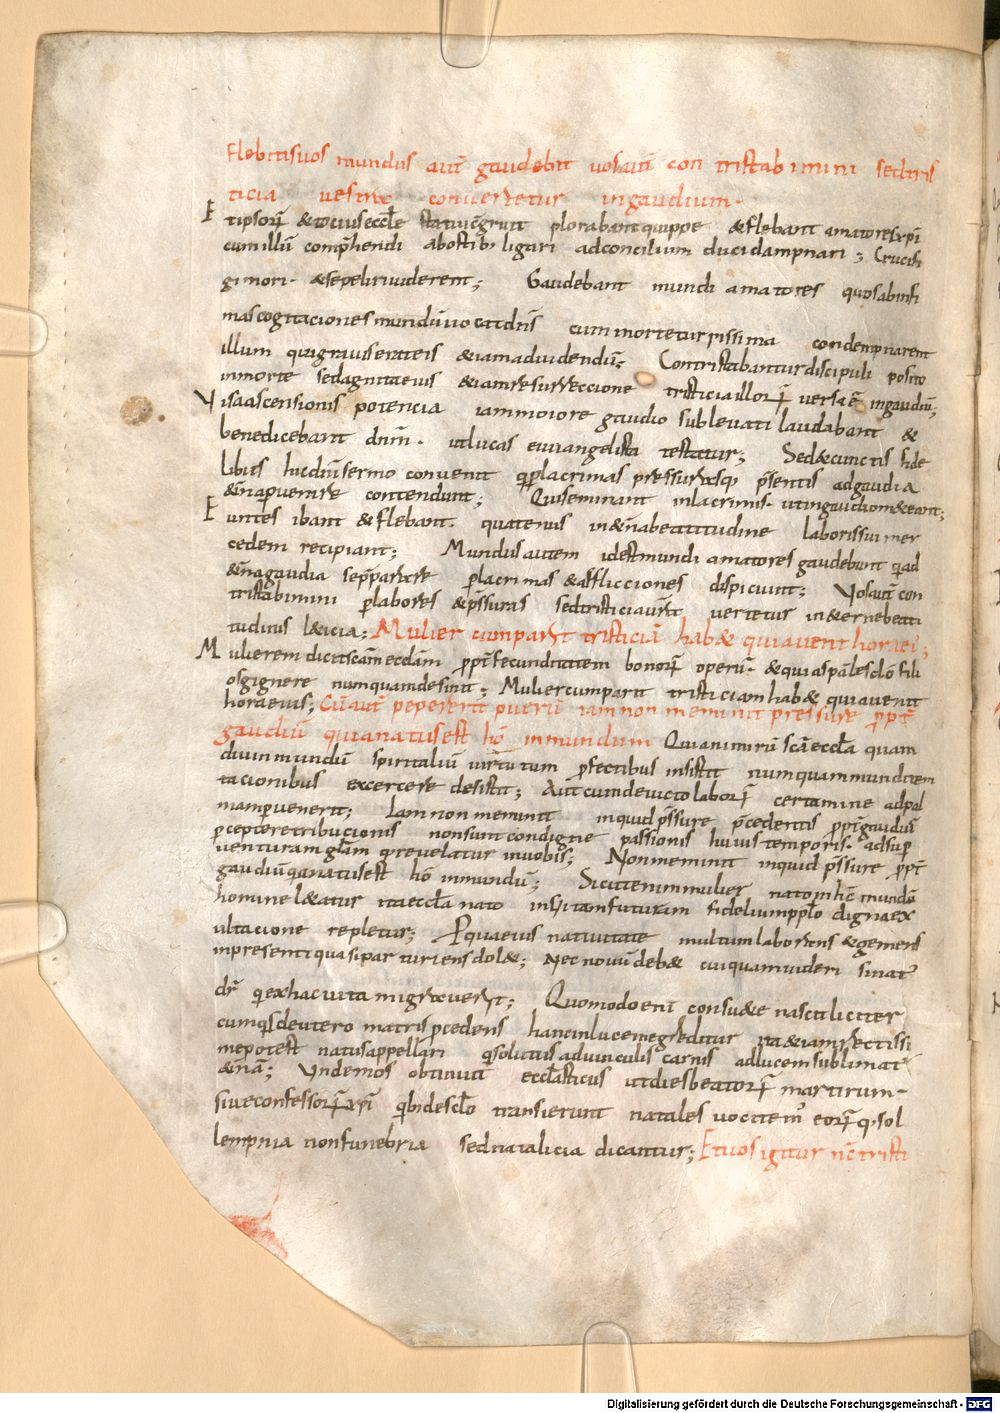 Flebitis uos mundus aut̄ gaudebit uos aut̄ contristabimini sed tris
ticia uestra conuertetur in gaudium.
Et ipsorū & tocius eccłe statui cōgruit plorabant quippe & flebant amatores xp̄i
cum illū comp̄hendi ab ostib; ligari ad concilium duci dampnari; Crucifi
gi mori. & sepeliri uiderent; Gaudebant mundi amatores quos ab infi
mas cogitaciones mundū uocat dn̄s cum morte turpissima condempnarent
illum qui grauis erat eis & iam ad uidendū; Contristabantur discipuli posito
in morte sed agnita eius & iam resurreccione tristicia illorū uersa ē in gaudiū;
Visa ascensionis potencia iam moiore gaudio subleuati laudabant &
benedicebant dn̄m. ut lucas euuangelista testatur; Sed & cunctis fide
libus hic dn̄i sermo conuenit qui p lacrimas pressurasq; p̄sentis ad gaudia
&̄na peruenire contendunt; Qui seminant in lacrimis. ut in gaudio m&eant;
Euntes ibant & flebant. quatenus in &̄na beatitudine laboris sui mer
cedem recipiant; Mundus autem id est mundi amatores gaudebunt qui ad
&̄na gaudia sep̄parare p lacrimas & afflicciones dispiciunt; Vos aut̄ con
tristabimini p labores & p̄ssuras sed tristicia ur̄a uertetur in &erne beati
tudinis l&icia; Mulier cum parit tristiciā hab& qui a uenit hora ei;
Mulierem dicit sc̄am eccłam ppt̄ fecunditatem bonorū operū. & qui a sp̄ales dō fili
os gignere numquam desinit; Mulier cum parit tristiciam hab& quia uenit
hora eius; Cū aut̄ pepererit puerū iam non meminit pressure ppt̄
gaudiū qui a natus est hō in mundum Quia nimirū sc̄a eccła quam
diu in mundū spiritaliū uirtutum pfectibus insistit numquam mundi tem
tacionibus excercere desistit; Aut cum deuicto laborū certamine ad pal
mam peruenerit; Iam non meminit inquid p̄ssure p̄cedentis ppt̄ gaudiū
pcepte retribucionis non sunt condigne passionis huius temporis. ad sup
uenturam głam q̄ reuelatur in uobis; Non meminit inquid p̄ssure ppt̄
gaudiū q̄a natus est hō in mundū; Sicut enim mulier nato in hc̄ mundū
homine l&atur ita eccła nato in uitam futuram fidelium pplo digna ex
ultacione repletur; P qua eius natiuitate multum laborens & gemens
in presenti quasi parturiens dol&; Nec nouū deb& cuiquam uideri si nat᷒
dr̄ qui ex hac uita migrauerit; Quomodo enī consu&e nasci liciter
cum q̄s de utero matris pcedens hanc in lucem egreditur ita & iam rectissi
me potest natus appellari q̄ solutus a duinculis carnis ad lucem sublimat᷒
&̄nā; Vnde mos obtinuit eccłasticus ut dies beatorū martirum.
siue confessorū xp̄i q̄b; de scło transierunt natales uocitem᷒ eorūq; sol
lempnia non funebria sed natalicia dicantur; Et uos igitur nc̄ tristi